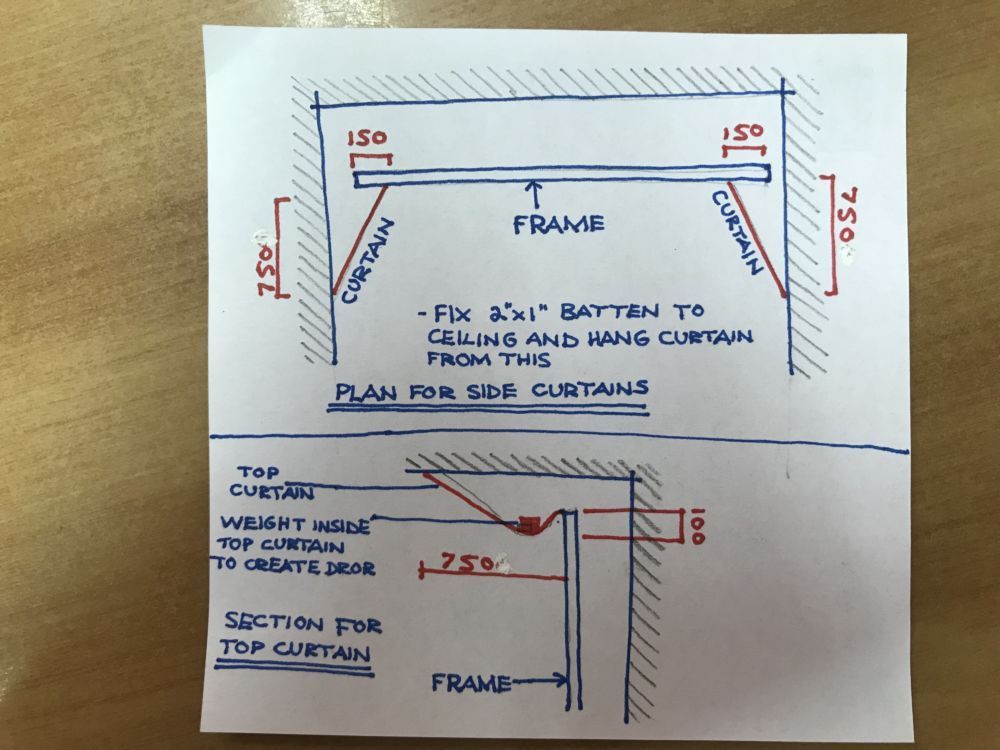 150
150
750
750
CURTAIN
CURTAIN
FRAME
- FIX 2"x1" BATTEN TO
CEILING AND HANG CURTAIN
FROM THIS
PLAN FOR SIDE CURTAINS
TOP
CURTAIN
WEIGHT INSIDE
TOP CURTAIN
TO CREATE DROR
100
750
SECTION FOR
TOP CURTAIN
FRAME